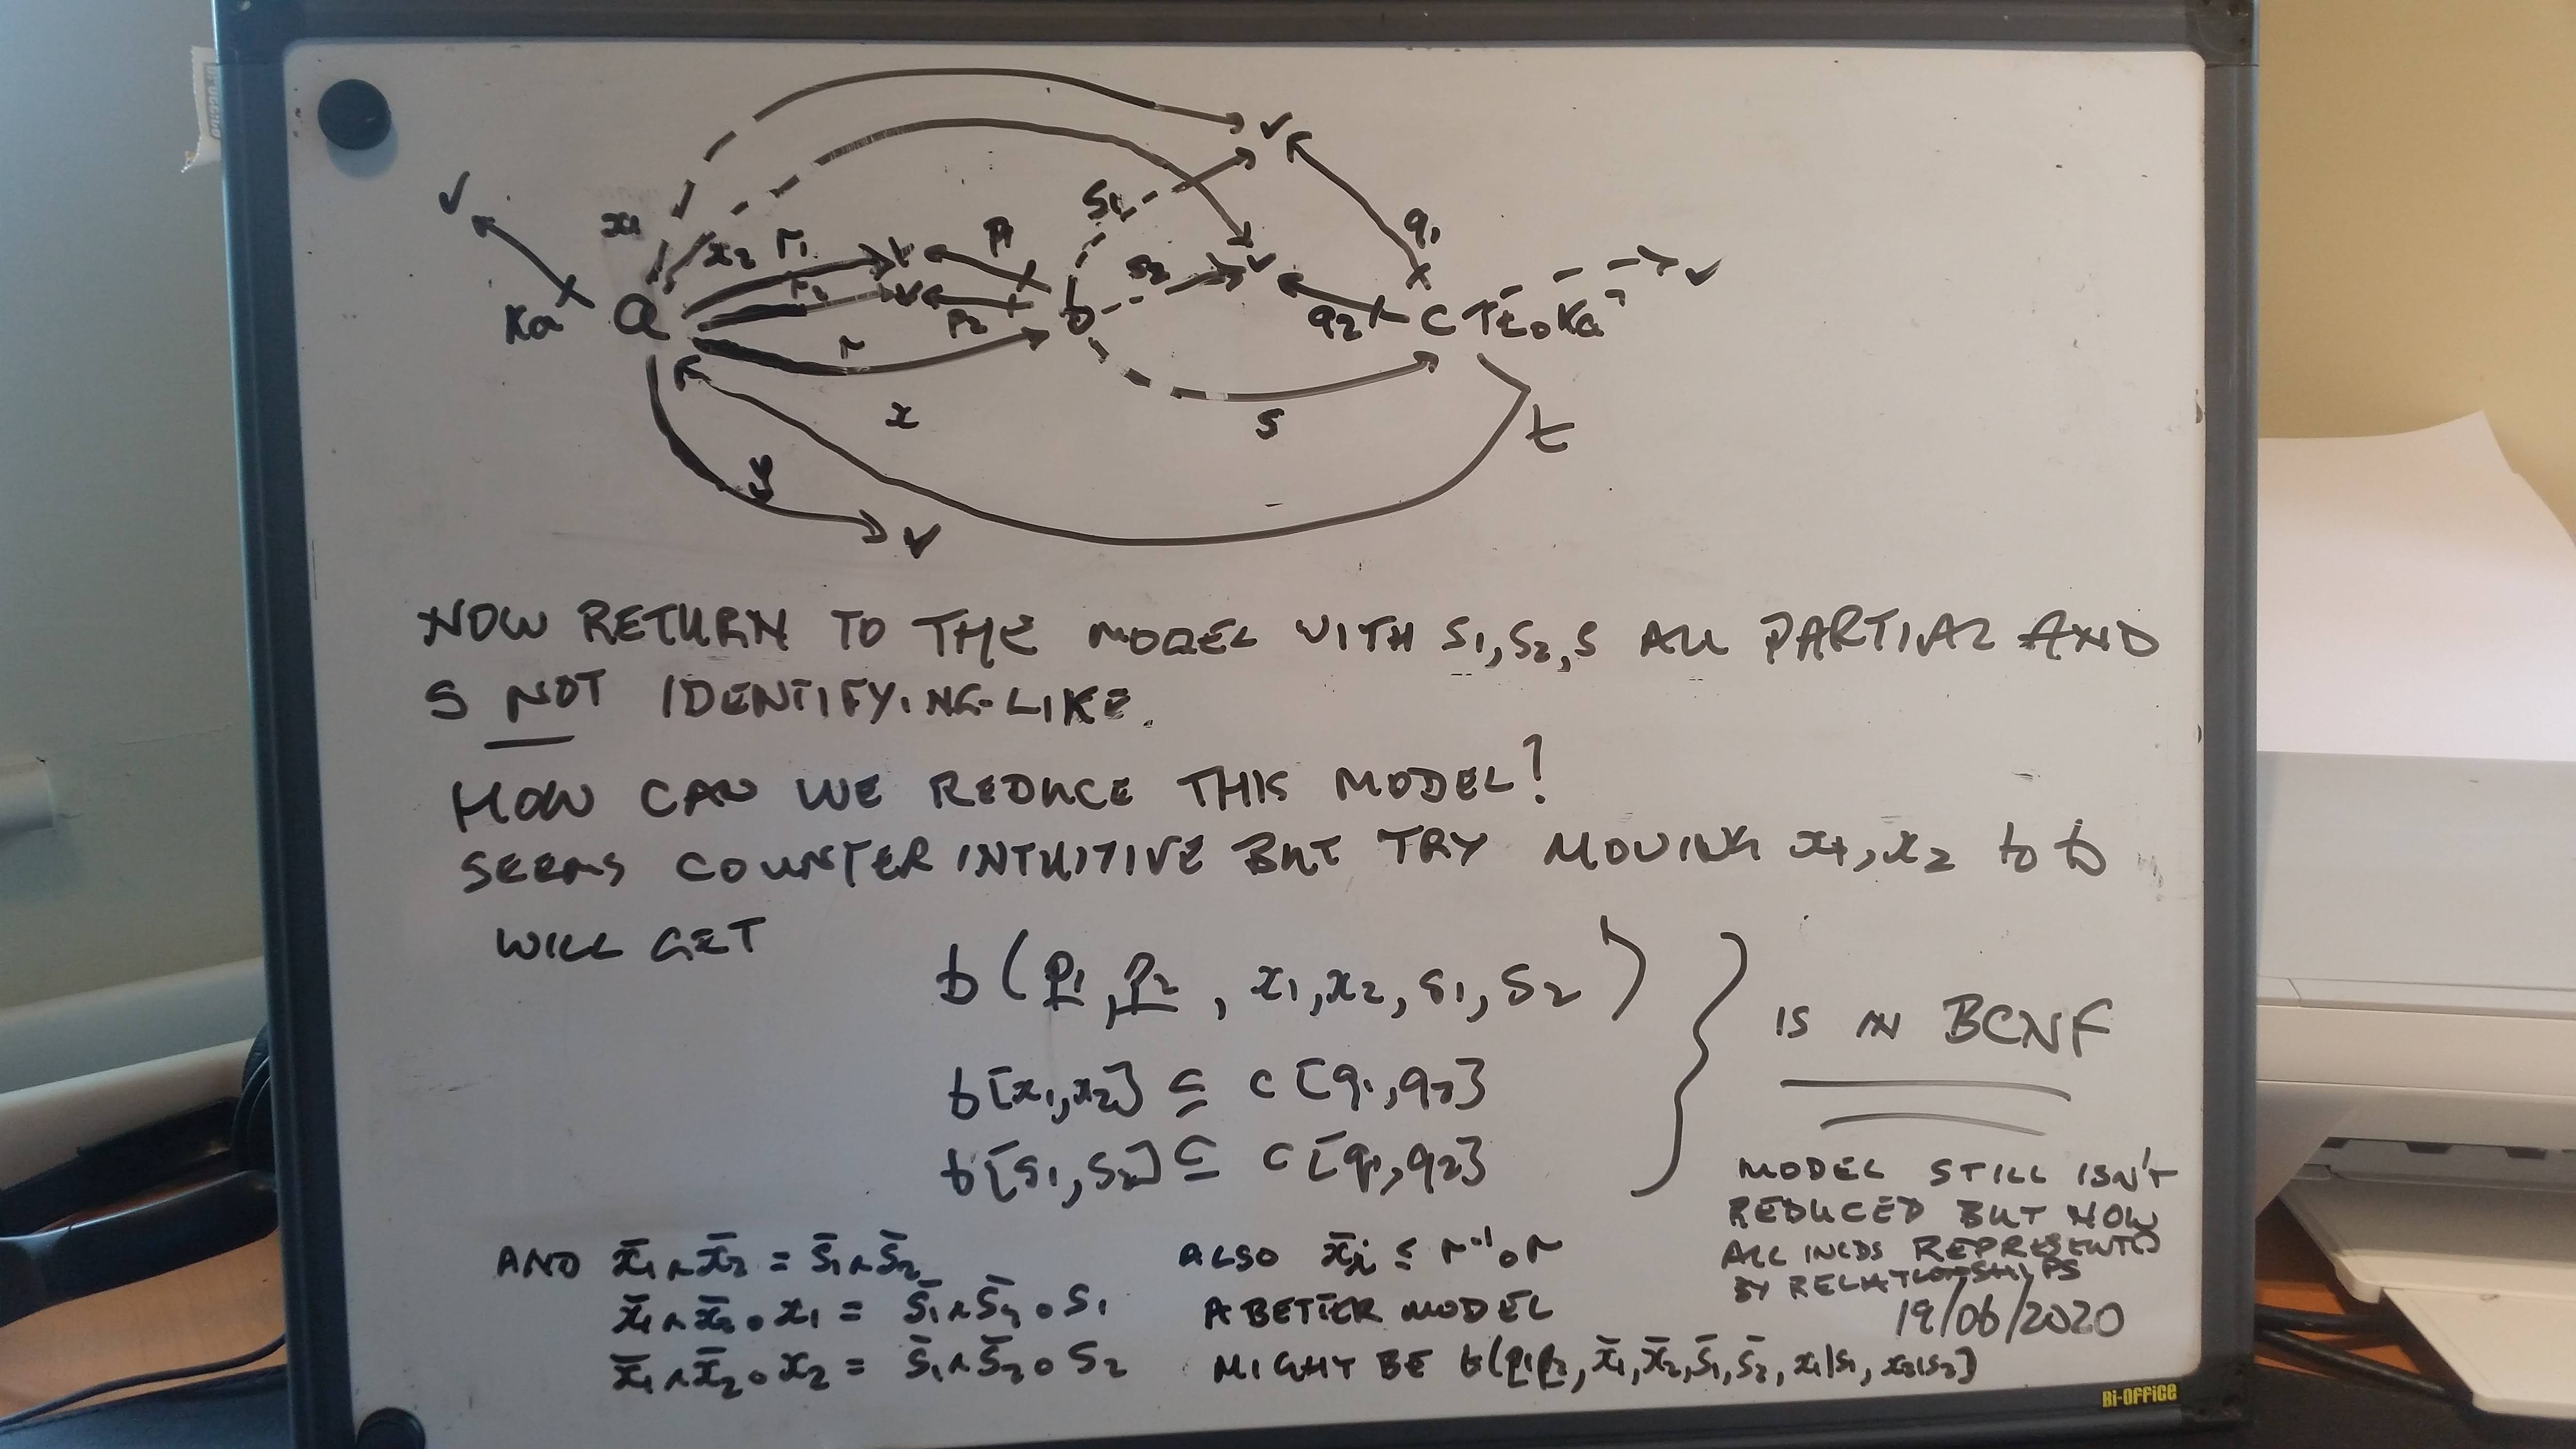 x₁
x₂
r₁
p₁
s₁
q₁
Ka
a
r₂
p₂
b
s₂
q₂
c
t∘Ka
r
x
s
t
y
v
v
v
v
v
v
v
NOW RETURN TO THE MODEL WITH S₁, S₂, S ALL PARTIAL AND
S NOT IDENTIFYING-LIKE.
HOW CAN WE REDUCE THIS MODEL?
SEEMS COUNTER INTUITIVE BUT TRY MOVING x₁, x₂ to b
WILL GET
b(p₁, p₂, x₁, x₂, s₁, s₂)
b[x₁, x₂] ⊆ c[q₁, q₂]
b[s₁, s₂] ⊆ c[q₁, q₂]
IS IN BCNF
MODEL STILL ISN'T
REDUCED BUT NOW
ALL INCDS REPRESENTED
BY RELATIONSHIPS
19/06/2020
AND x̄₁ ∧ x̄₂ = s̄₁ ∧ s̄₂
x̄₁ ∧ x̄₂ ∘ x₁ = s̄₁ ∧ s̄₂ ∘ s₁
x̄₁ ∧ x̄₂ ∘ x₂ = s̄₁ ∧ s̄₂ ∘ s₂
ALSO x̄ᵢ ≤ r⁻¹ ∘ r
A BETTER MODEL
MIGHT BE b(p₁p₂, x̄₁, x̄₂, s̄₁, s̄₂, x₁|s₁, x₂|s₂)
Bi-OFFiCE